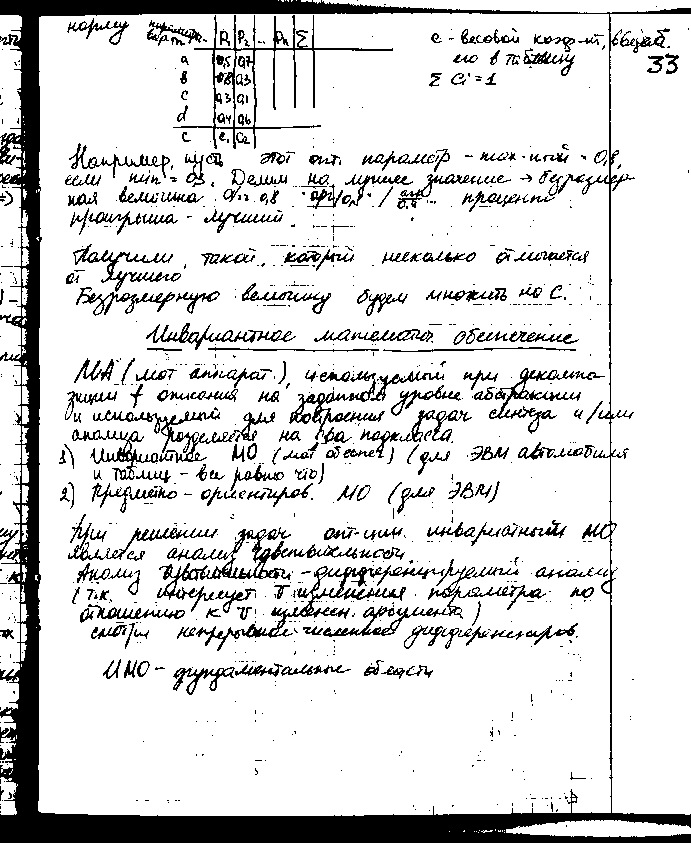 норму
параметр.
вар-т P₁ P₂ .. Pn Σ
a 0,5 0,7
b 0,8 0,3
c 0,3 0,1
d 0,4 0,6
c c₁ c₂
c - весовой коэф-т,
его в таблицу
Σ Ci = 1
33
Например, пусть этот опт. параметр - max-ный = 0,8,
если min = 0,3. Делим на лучшее значение → безразмер
ная величина процент
проигрыша - лучший
Получили такой, который несколько отличается
от лучшего
Безразмерную величину будем множить на C.
Инвариантное математ. обеспечение
МА (мат аппарат), используемый при декомпо
зиции f описания на заданном уровне абстракции
и используемый для построения задач синтеза и/или
анализа разделяется на два подкласса.
1) Инвариантное МО (мат обеспеч) (для ЭВМ автомобиля
и таблиц - все равно что)
2) Предметно-ориентиров. МО (для ЭВМ)
При решении задач опт-ции инвариатным МО
является анализ чувствительности
Анализ чувствительности - дифференцируемый анализ
(т.к. интересует v изменения параметра по
отношению к v изменен. аргумента)
смотри непрерывное численное дифференциров.
ИМО - фундаментальные области